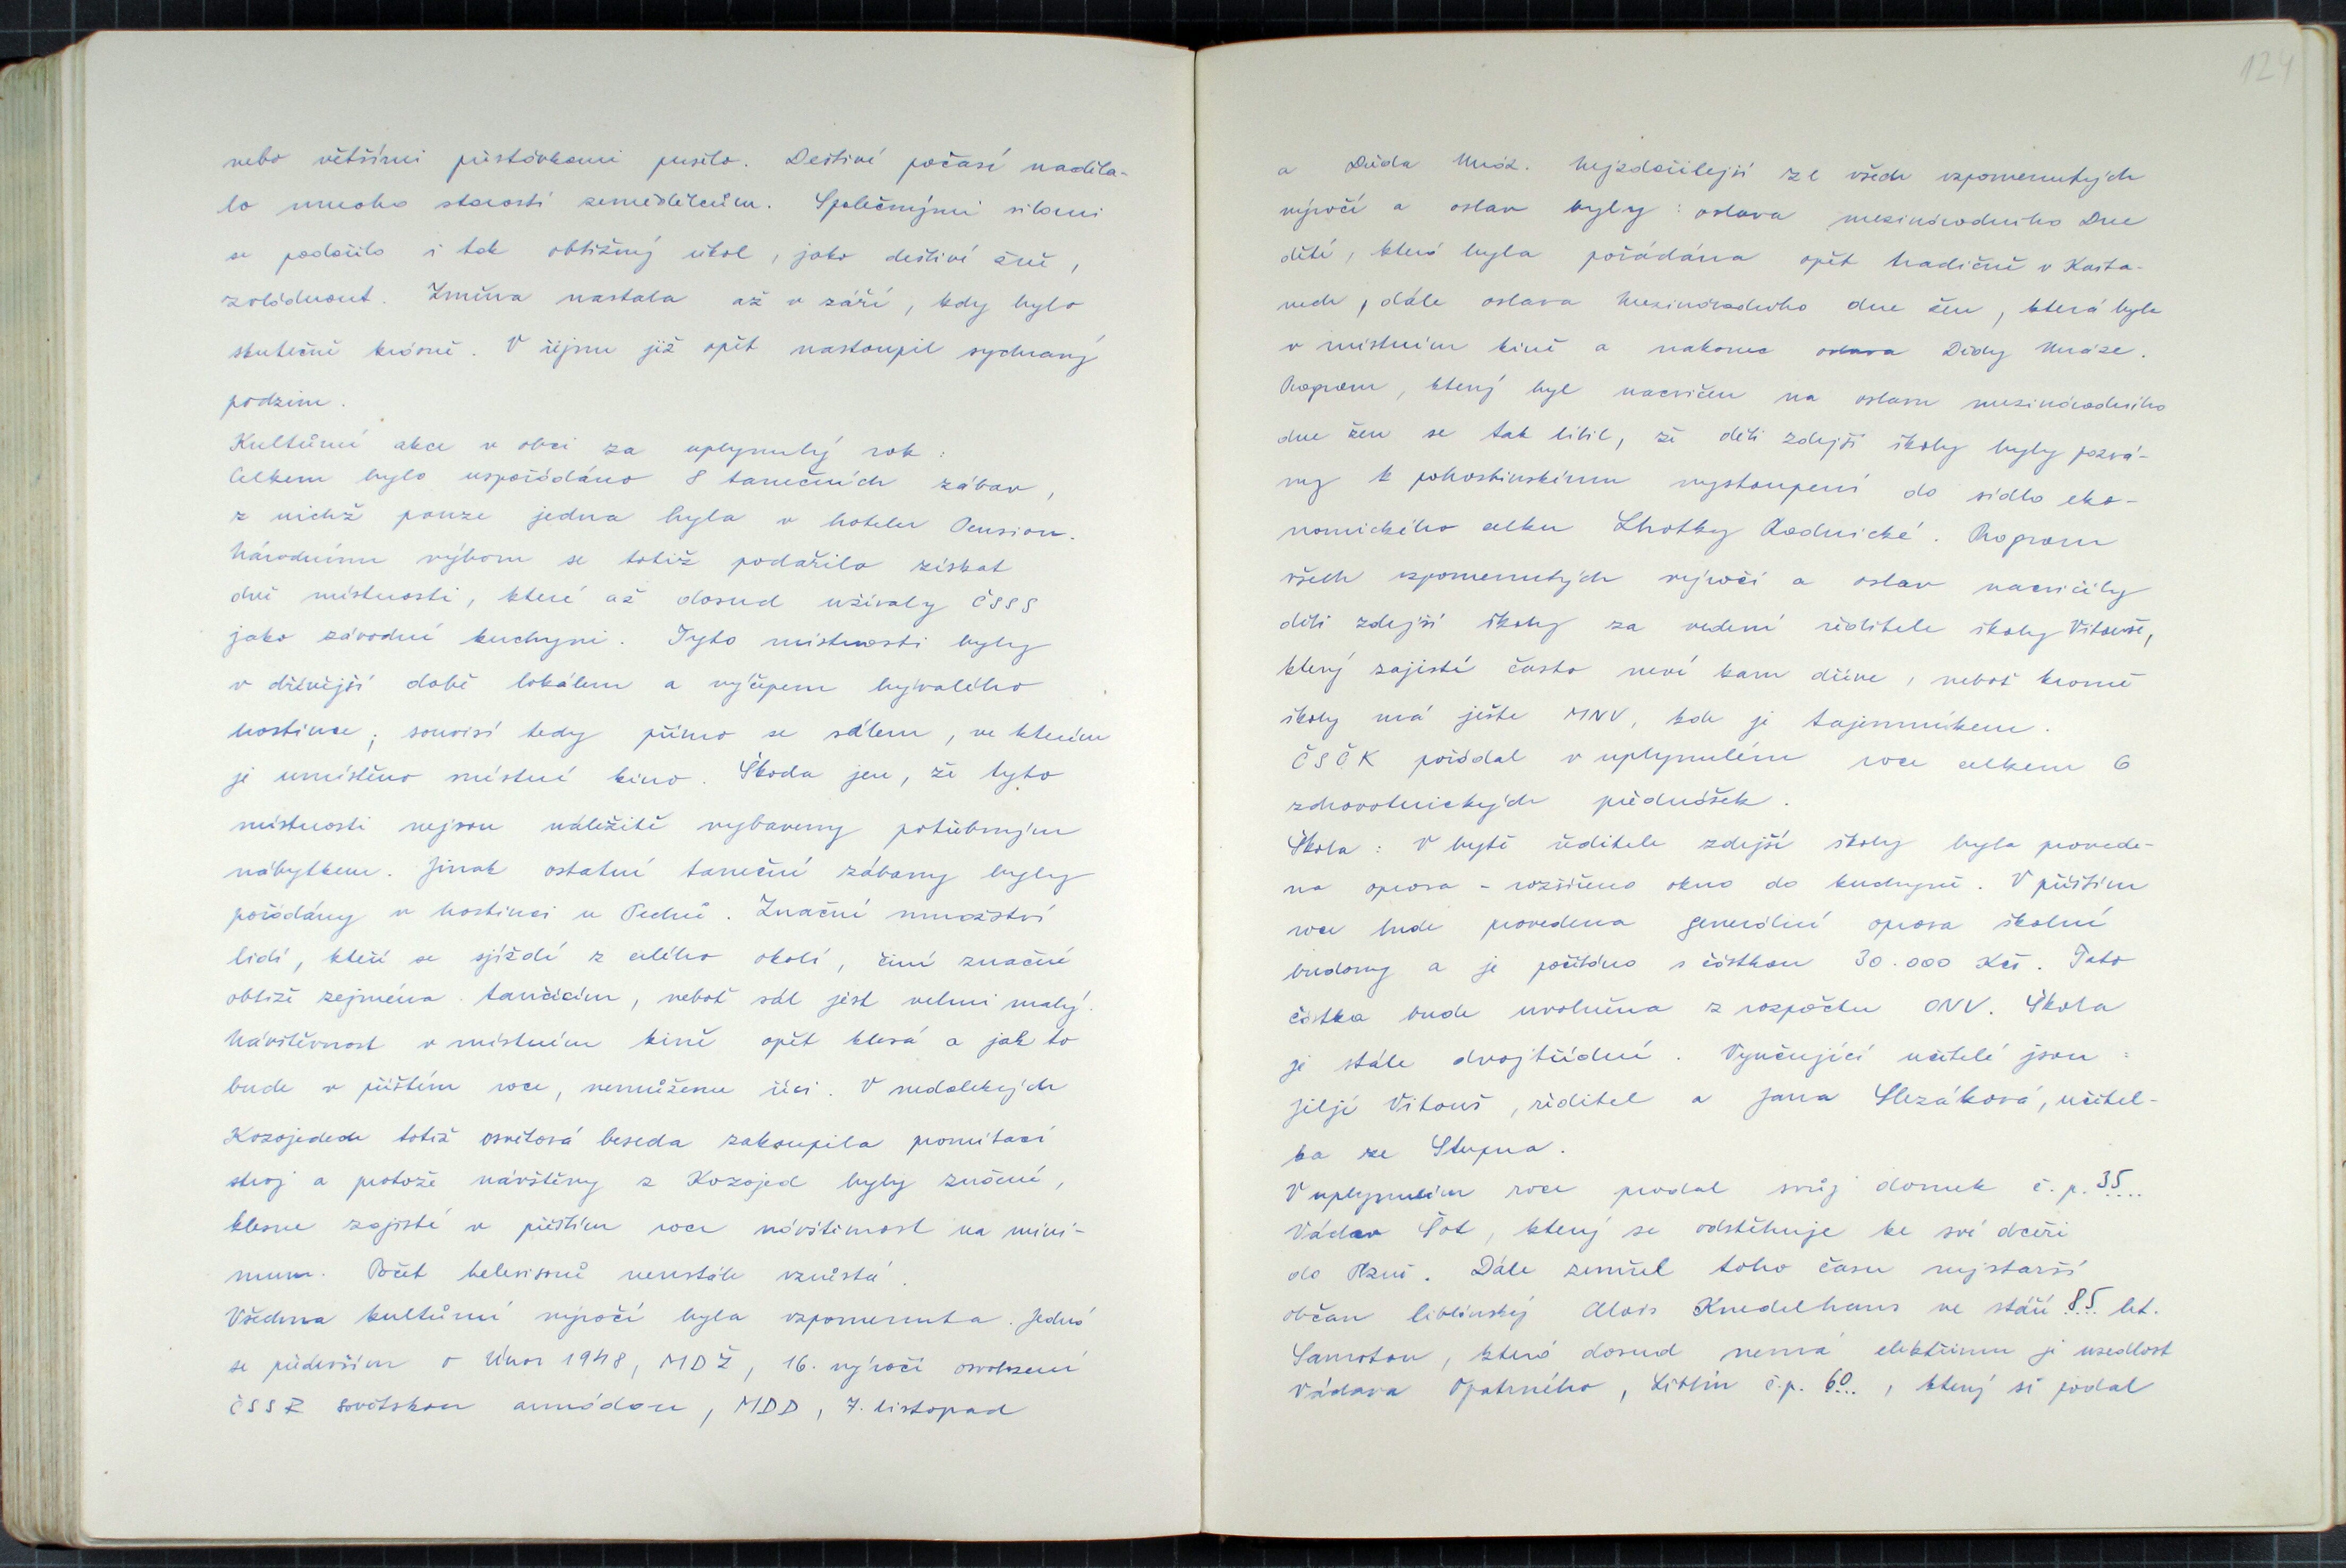 nebo většími přestávkami pršelo. Deštivé počasí naděla-
lo mnoho starostí zemědělcům. Společnými silami
se podařilo i tak obtížný úkol, jako deštivé žně,
zvládnout. Změna nastala až v září, kdy bylo
skutečně krásně. V říjnu již opět nastoupil sychravý
podzim.
Kultůrní akce v obci za uplynulý rok:
Celkem bylo uspořádáno 8 tanečních zábav,
z nichž pouze jedna byla v hotelu Pension.
Národnímu výboru se totiž podařilo získat
dvě místnosti, které až dosud užívaly ČSSS
jako závodní kuchyni. Tyto místnosti byly
v dřívější době lokálem a výčepem bývalého
hostince; souvisí tedy přímo se sálem, ve kterém
je umístěno místní kino. Škoda jen, že tyto
místnosti nejsou náležitě vybaveny potřebným
nábytkem. Jinak ostatní taneční zábavy byly
pořádány v hostinci u Pechů. Značné množství
lidí, kteří se sjíždí z celého okolí, činí značné
obtíže zejména tančícím, neboť sál jest velmi malý.
Návštěvnost v místním kině opět klesá a jak to
bude v příštím roce, nemůžeme říci. V nedalekých
Kozojedech totiž osvětová beseda zakoupila promítací
stroj a protože návštěvy z Kozojed byly značné,
klesne zajisté v příštím roce návštěvnost na mini-
mum. Počet televisorů neustále vzrůstá.
Všechna kultůrní výročí byla vzpomenuta. Jedná
se především o Únor 1948, MDŽ, 16. výročí osvobození
ČSSR sovětskou armádou, MDD, 7. listopad
124
a Děda Mráz. Nejzdařilejší ze všech vzpomenutých
výročí a oslav byly: oslava mezinárodního Dne
dětí, která byla pořádána opět tradičně v Kašta-
nech, dále oslava Mezinárodního dne žen, která byla
v místním kině a nakonec oslava Dědy Mráze.
Program, který byl nacvičen na oslavu mezinárodního
dne žen se tak líbil, že děti zdejší školy byly pozvá-
ny k pohostinskému vystoupení do sídla eko-
nomického celku Lhotky Radnické. Program
všech vzpomenutých výročí a oslav nacvičily
děti zdejší školy za vedení ředitele školy Vitouše,
který zajisté často neví kam dříve, neboť kromě
školy má ješte MNV, kde je tajemníkem.
ČSČK pořádal v uplynulém roce celkem 6
zdravotnických přednášek.
Škola: V bytě ředitele zdejší školy byla provede-
na oprava - rozšířeno okno do kuchyně. V příštím
roce bude provedena generální oprava školní
budovy a je počítáno s částkou 30.000 Kčs. Tato
částka bude uvolněna z rozpočtu ONV. Škola
je stále dvojtřídní. Vyučující učitelé jsou:
Jiljí Vitouš, ředitel a Jana Slezáková, učitel-
ka ze Stupna.
V uplynulém roce prodal svůj domek č.p. 35
Václav Šot, který se odstěhuje ke své dceři
do Plzně. Dále zemřel toho času nejstarší
občan liblínský Alois Knedelhans ve stáří 85 let.
Samotou, která dosud nemá elektřinu je usedlost
Václava Opatrného, Liblín č.p. 60, který si podal